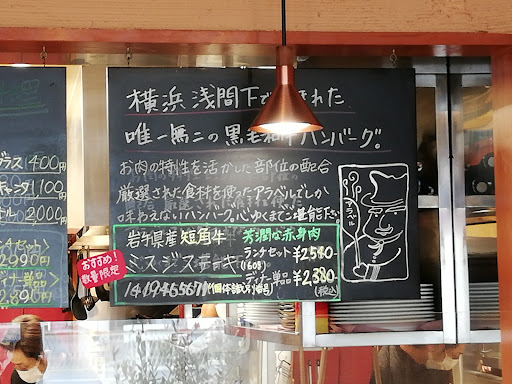 グラス 400円
キャンタ 1,100
トル 2000円
チセット>
2,090円
ナー単品>
2,390円
横浜 浅間下で まれた
唯一無二の黒毛和牛ハンバーグ。
お肉の特性を活かした部位の配合
厳選された食材を使ったアラベルでしか
味わえないハンバーグ。心ゆくまでご堪能下さい。
おすすめ!
数量限定
岩手県産 短角牛 芳潤な赤身肉
ミスジステーキ ランチセット ¥2,540
(160g)
ディナー単品 ¥2,380
(税込)
(個体識別番号)